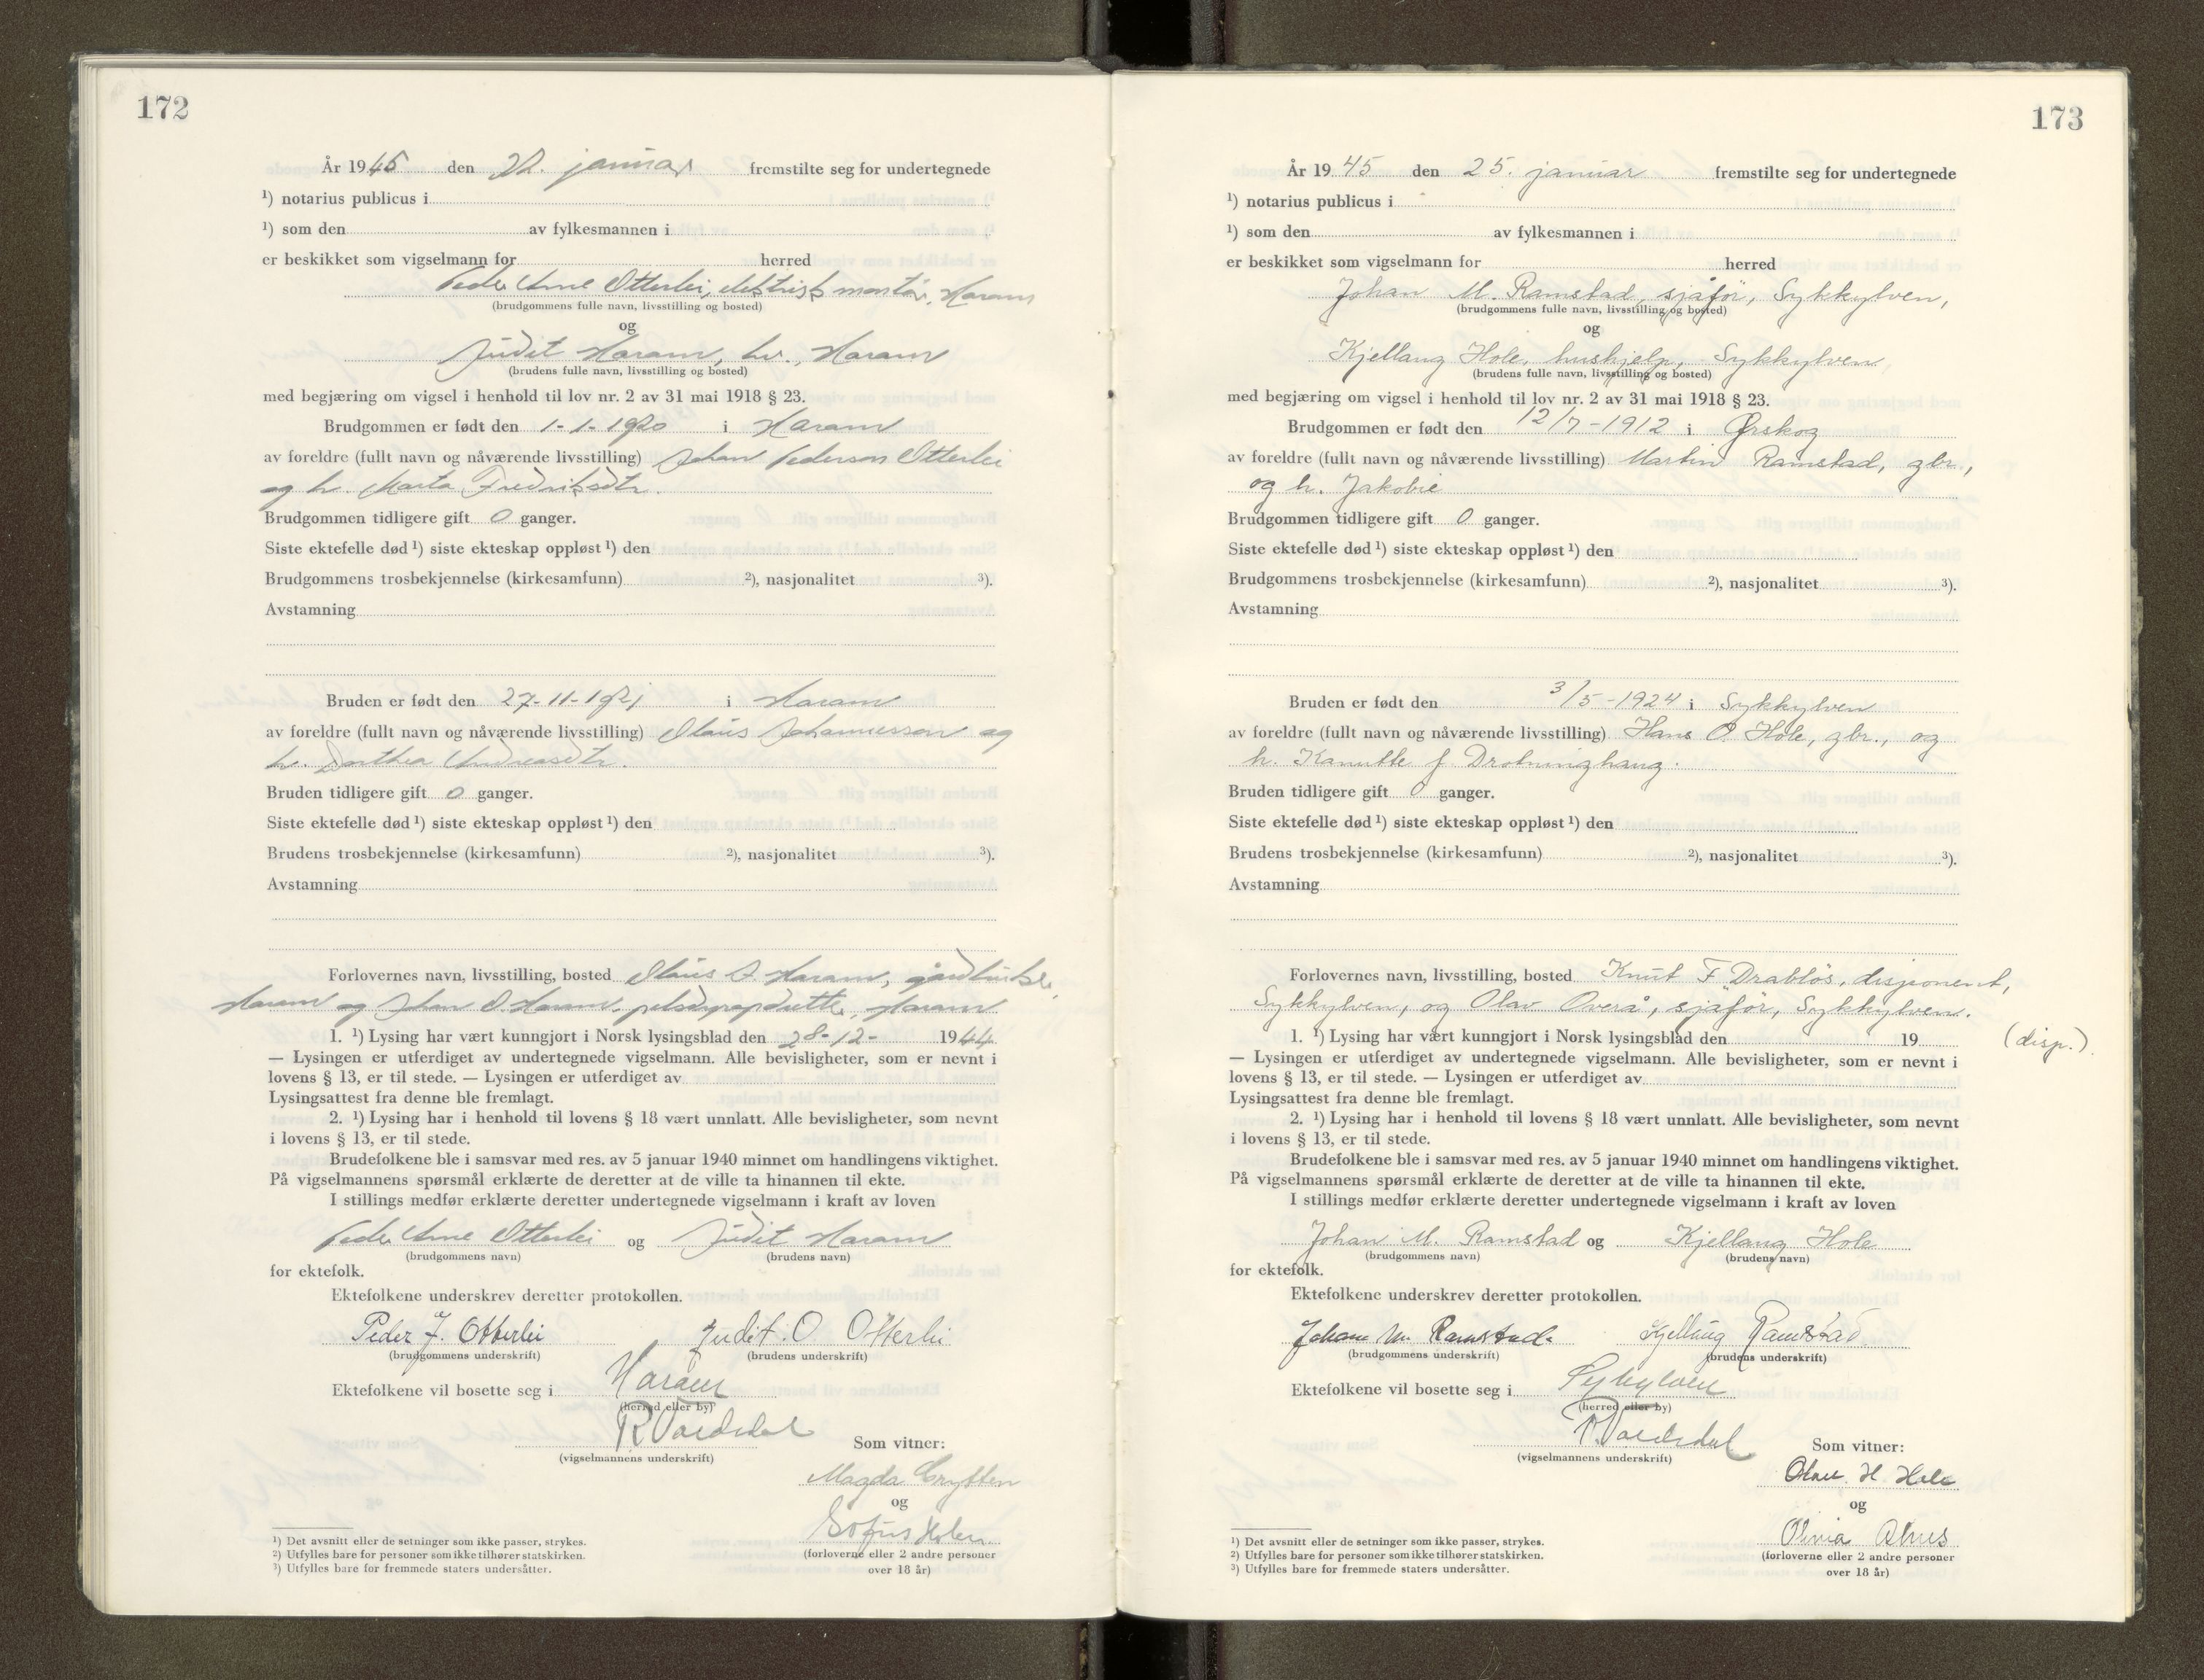 172
År 1945 den 22. januar fremstilte seg for undertegnede
¹) notarius publicus i
¹) som den av fylkesmannen i
er beskikket som vigselmann for herred
Peder Arne Otterlei, elektrisk montør, Haram
(brudgommens fulle navn, livsstilling og bosted)
og
Judit Haram, hv., Haram
(brudens fulle navn, livsstilling og bosted)
med begjæring om vigsel i henhold til lov nr. 2 av 31 mai 1918 § 23.
Brudgommen er født den 1-1-1920 i Haram
av foreldre (fullt navn og nåværende livsstilling) Johan Pederson Otterlei
og h. Marta Fredriksdtr.
Brudgommen tidligere gift 0 ganger.
Siste ektefelle død ¹) siste ekteskap oppløst ¹) den
Brudgommens trosbekjennelse (kirkesamfunn) ²), nasjonalitet ³).
Avstamning
Bruden er født den 27-11-1921 i Haram
av foreldre (fullt navn og nåværende livsstilling) Olaus Johannesson og
h. Dorthea Andreasdtr.
Bruden tidligere gift 0 ganger.
Siste ektefelle død ¹) siste ekteskap oppløst ¹) den
Brudens trosbekjennelse (kirkesamfunn) ²), nasjonalitet ³).
Avstamning
Forlovernes navn, livsstilling, bosted Olaus J. Haram, gardbruker,
Haram og Johan O. Haram, pelsdyroppdretter, Haram
1. ¹) Lysing har vært kunngjort i Norsk lysingsblad den 28-12- 1944
— Lysingen er utferdiget av undertegnede vigselmann. Alle bevisligheter, som er nevnt i
lovens § 13, er til stede. — Lysingen er utferdiget av
Lysingsattest fra denne ble fremlagt.
2. ¹) Lysing har i henhold til lovens § 18 vært unnlatt. Alle bevisligheter, som nevnt
i lovens § 13, er til stede.
Brudefolkene ble i samsvar med res. av 5 januar 1940 minnet om handlingens viktighet.
På vigselmannens spørsmål erklærte de deretter at de ville ta hinannen til ekte.
I stillings medfør erklærte deretter undertegnede vigselmann i kraft av loven
Peder Arne Otterlei og Judit Haram
(brudgommens navn) (brudens navn)
for ektefolk.
Ektefolkene underskrev deretter protokollen.
Peder J. Otterlei Judit. O Otterlei
(brudgommens underskrift) (brudens underskrift)
Ektefolkene vil bosette seg i Haram
(herred eller by)
(vigselmannens underskrift)
Som vitner:
Magda Grytten
og
Sofus Holen
(forloverne eller 2 andre personer
over 18 år)
¹) Det avsnitt eller de setninger som ikke passer, strykes.
²) Utfylles bare for personer som ikke tilhører statskirken.
³) Utfylles bare for fremmede staters undersåtter.
173
År 1945 den 25. januar fremstilte seg for undertegnede
¹) notarius publicus i
¹) som den av fylkesmannen i
er beskikket som vigselmann for herred
Johan M. Ramstad, sjåför, Sykkylven,
(brudgommens fulle navn, livsstilling og bosted)
og
Kjellaug Hole, hushjelp, Sykkylven
(brudens fulle navn, livsstilling og bosted)
med begjæring om vigsel i henhold til lov nr. 2 av 31 mai 1918 § 23.
Brudgommen er født den 12/7-1912 i Ørskog
av foreldre (fullt navn og nåværende livsstilling) Martin Ramstad, gbr.,
og h. Jakobie
Brudgommen tidligere gift 0 ganger.
Siste ektefelle død ¹) siste ekteskap oppløst ¹) den
Brudgommens trosbekjennelse (kirkesamfunn) ²), nasjonalitet ³).
Avstamning
Bruden er født den 3/5-1924 i Sykkylven
av foreldre (fullt navn og nåværende livsstilling) Hans O. Hole, gbr., og
h. Kanutte f. Drotninghaug.
Bruden tidligere gift 0 ganger.
Siste ektefelle død ¹) siste ekteskap oppløst ¹) den
Brudens trosbekjennelse (kirkesamfunn) ²), nasjonalitet ³).
Avstamning
Forlovernes navn, livsstilling, bosted Knut F. Drabløs, disponent,
Sykkylven, og Olav Overå, sjåför, Sykkylven.
1. ¹) Lysing har vært kunngjort i Norsk lysingsblad den 19 (disp.).
— Lysingen er utferdiget av undertegnede vigselmann. Alle bevisligheter, som er nevnt i
lovens § 13, er til stede. — Lysingen er utferdiget av
Lysingsattest fra denne ble fremlagt.
2. ¹) Lysing har i henhold til lovens § 18 vært unnlatt. Alle bevisligheter, som nevnt
i lovens § 13, er til stede.
Brudefolkene ble i samsvar med res. av 5 januar 1940 minnet om handlingens viktighet.
På vigselmannens spørsmål erklærte de deretter at de ville ta hinannen til ekte.
I stillings medfør erklærte deretter undertegnede vigselmann i kraft av loven
Johan M. Ramstad og Kjellaug Hole
(brudgommens navn) (brudens navn)
for ektefolk.
Ektefolkene underskrev deretter protokollen.
Johan M. Ramstad. Kjellaug Ramstad
(brudgommens underskrift) (brudens underskrift)
Ektefolkene vil bosette seg i Sykylven
(herred eller by)
(vigselmannens underskrift)
Som vitner:
Olav. H. Hole
og
Olivia Ahus
(forloverne eller 2 andre personer
over 18 år)
¹) Det avsnitt eller de setninger som ikke passer, strykes.
²) Utfylles bare for personer som ikke tilhører statskirken.
³) Utfylles bare for fremmede staters undersåtter.